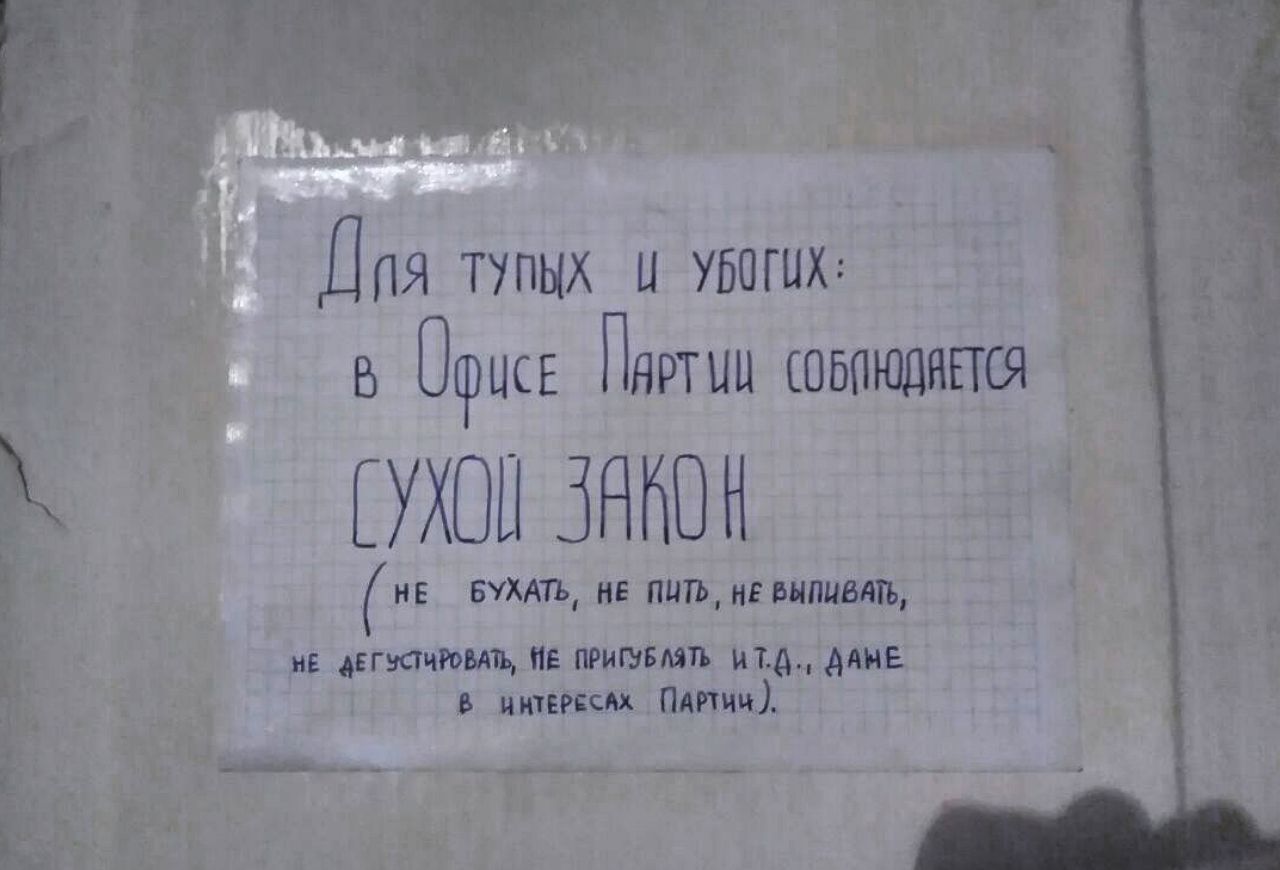 Для тупых и убогих:
в Офисе Партии соблюдается
СУХОЙ ЗАКОН
(не бухать, не пить, не выпивать,
не дегустировать, не пригублять и т.д., даже
в интересах Партии).